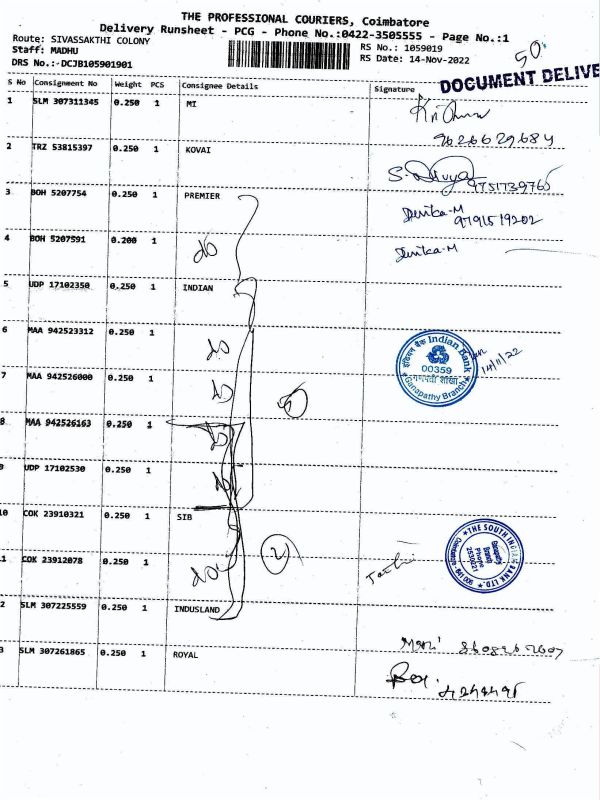 THE PROFESSIONAL COURIERS, Coimbatore
Delivery Runsheet - PCG - Phone No.:0422-3505555 - Page No.:1
Route: SIVASSAKTHI COLONY
Staff: MADHU
DRS No.:-DCJB105901901
RS No.: 1059019
RS Date: 14-Nov-2022
50
DOCUMENT DELIVE
S No Consignment No Weight PCS Consignee Details Signature
1 SLM 307311345 0.250 1 MI
9626629684
2 TRZ 53815397 0.250 1 KOVAI
S. Divya 9751739765
3 BOH 5207754 0.250 1 PREMIER
Devika-M
9791519202
4 BOH 5207591 0.200 1 do
Devika-M
5 UDP 17102350 0.250 1 INDIAN
6 MAA 942523312 0.250 1 do
इंडियन बैंक Indian Bank
00359
गणपती शाखा
Ganapathy Branch
14/11/22
7 MAA 942526000 0.250 1 do
5
8 MAA 942526163 0.250 1 do
9 UDP 17102530 0.250 1 do
10 COK 23910321 0.250 1 SIB
2
THE SOUTH INDIAN BANK LTD.
Ganapathy
Branch
Phone
2530221
Coimbatore - 641 006
1 COK 23912078 0.250 1 do
2 SLM 307225559 0.250 1 INDUSLAND
Mani 8608262007
3 SLM 307261865 0.250 1 ROYAL